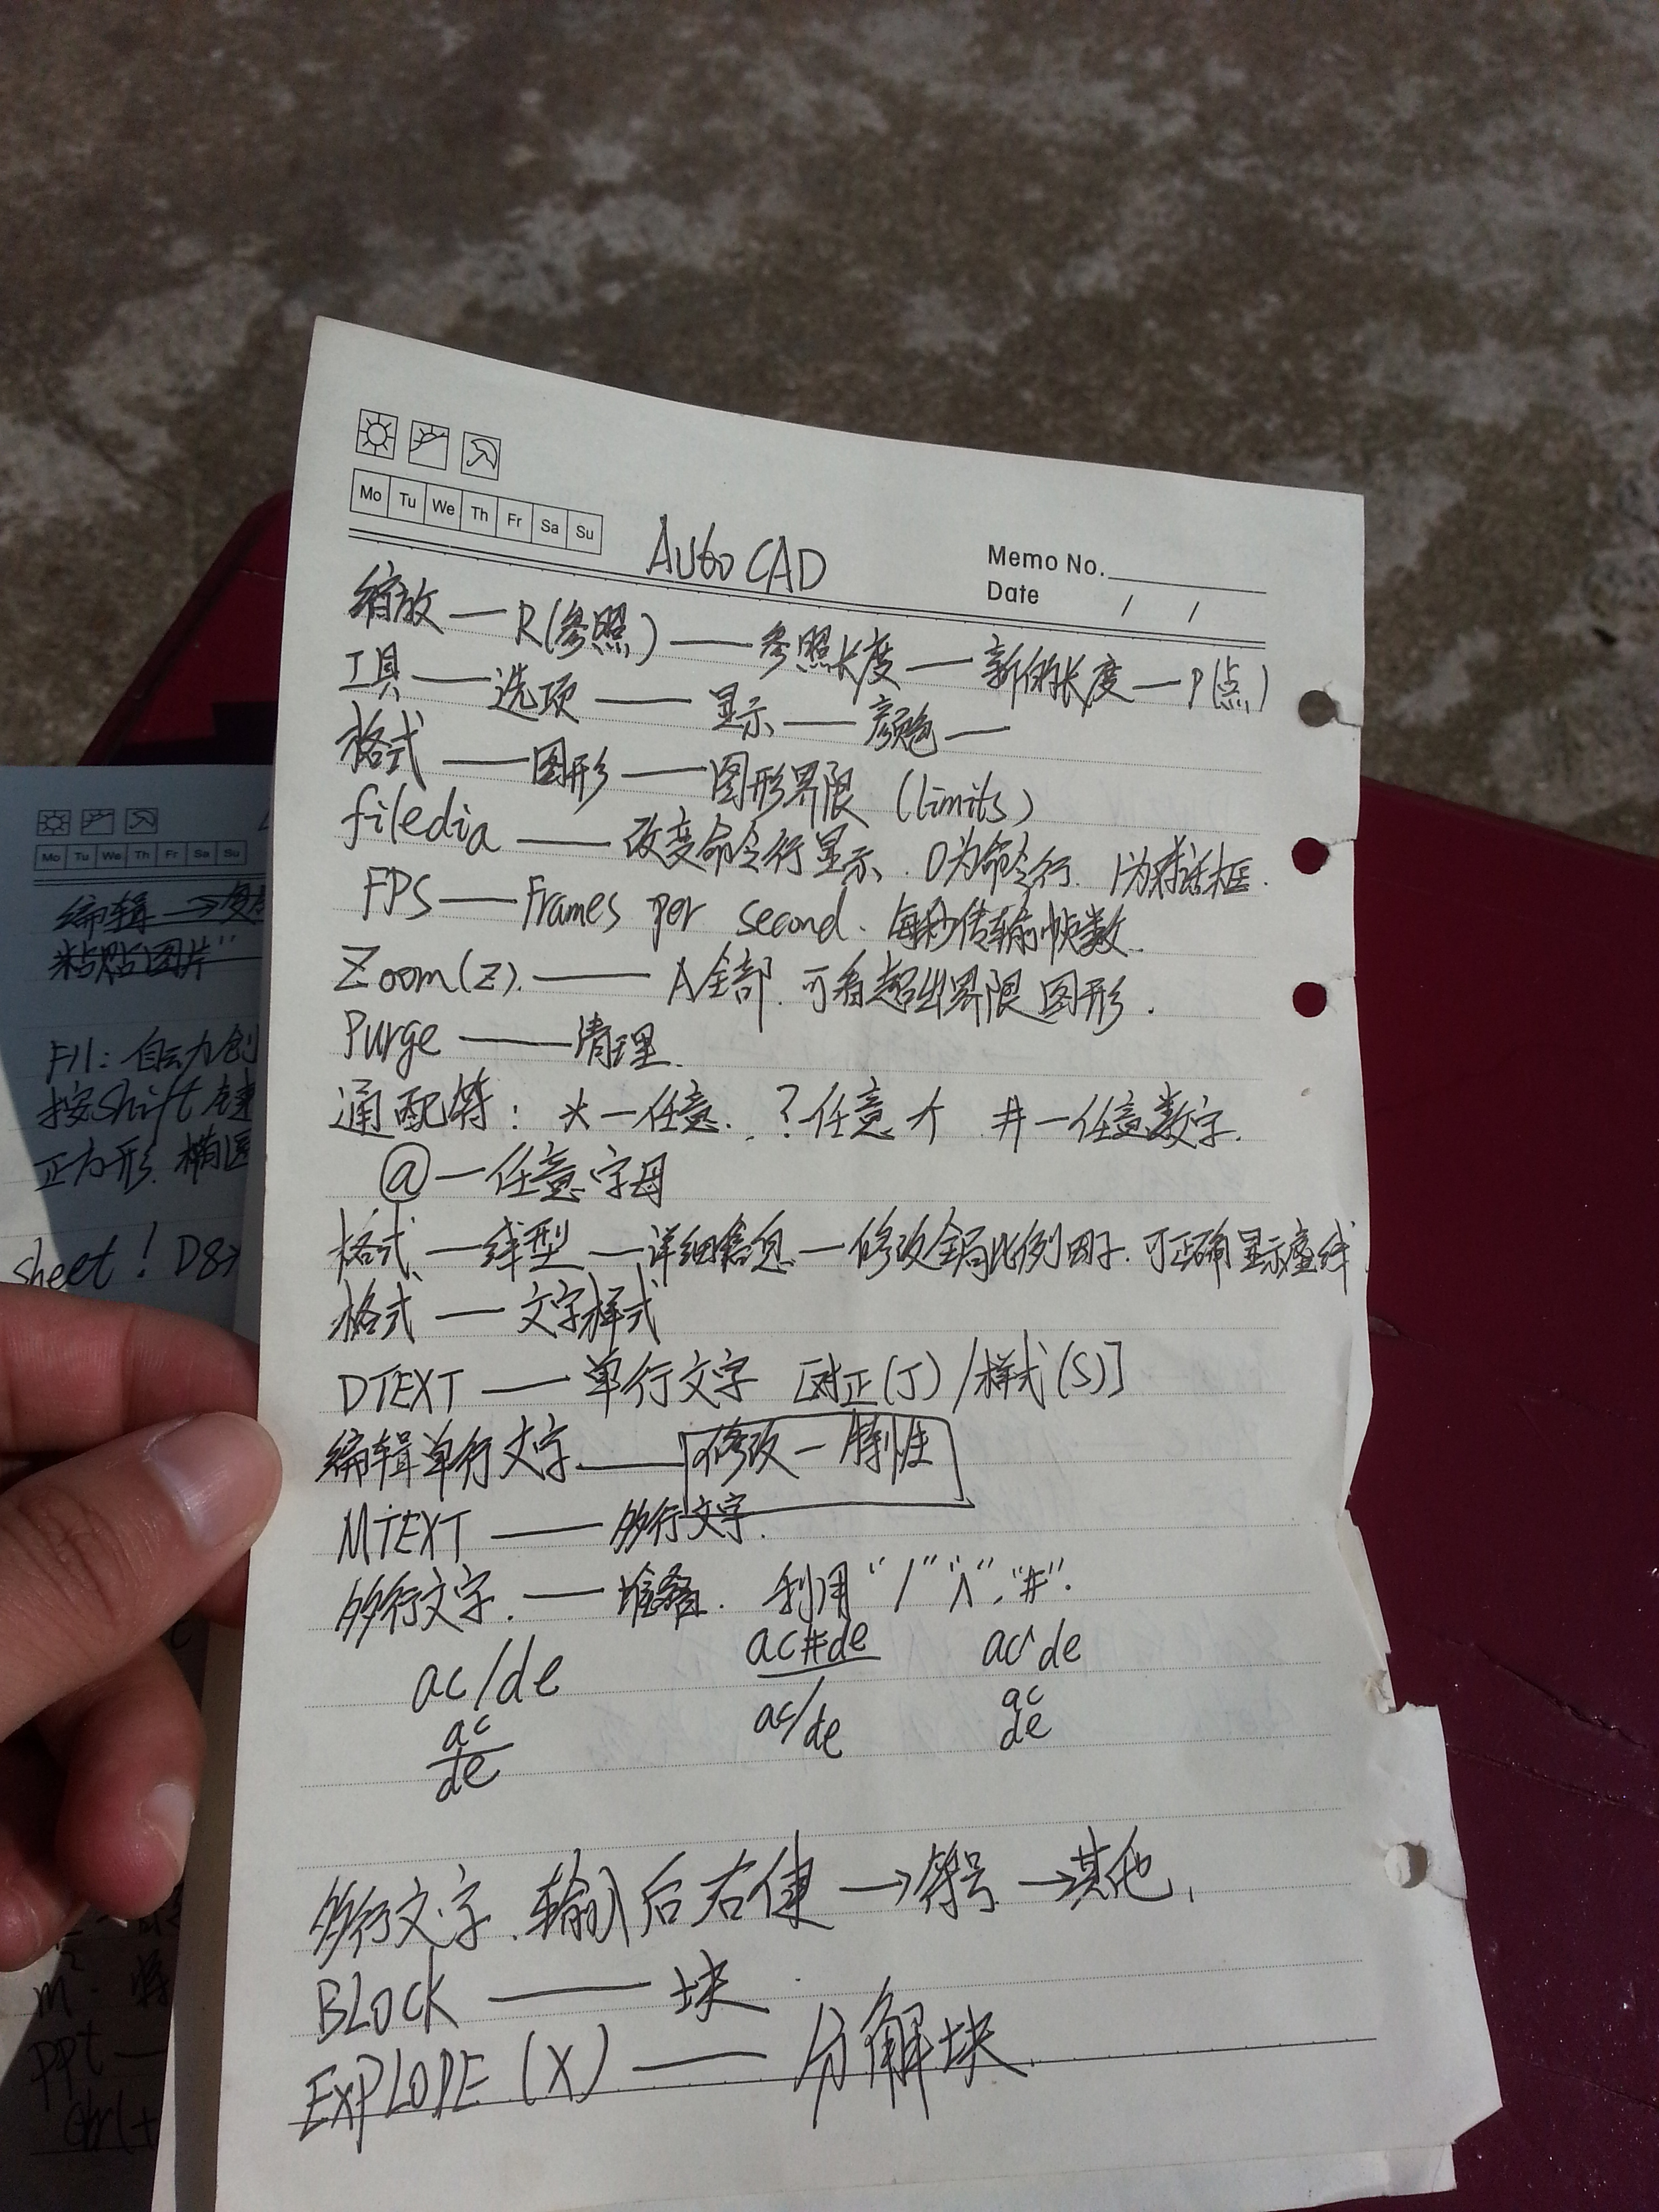 Mo Tu We Th Fr Sa Su
AutoCAD
Memo No.
Date / /
缩放—R(参照)—参照长度—新的长度—P(点)
工具—选项—显示—颜色—
格式—图形—图形界限 (limits)
filedia—改变命令行显示. 0为命令行. 1为对话框.
FPS—Frames per second. 每秒传输帧数.
Zoom(Z).—A全部.可看超出界限图形.
Purge—清理.
通配符: *—任意. ?任意个 #—任意数字.
@—任意字母
格式—线型—详细信息—修改全局比例因子.可正确显示虚线.
格式—文字样式
DTEXT—单行文字 [对正(J)/样式(S)]
编辑单行文字.—修改—特性
MTEXT—多行文字.
多行文字.—堆叠. 利用"/""^"."#".
ac/de ac#de ac^de
ac
de
ac/de
ac
de
多行文字.输入后右键→符号→其他.
BLOCK—块
EXPLODE (X)—分解块.
Mo Tu We Th Fr Sa Su
编辑→
粘贴图片"
F11: 自动创
按Shift键
正方形.椭圆
sheet!D8
m²
ppt—
Ctrl+